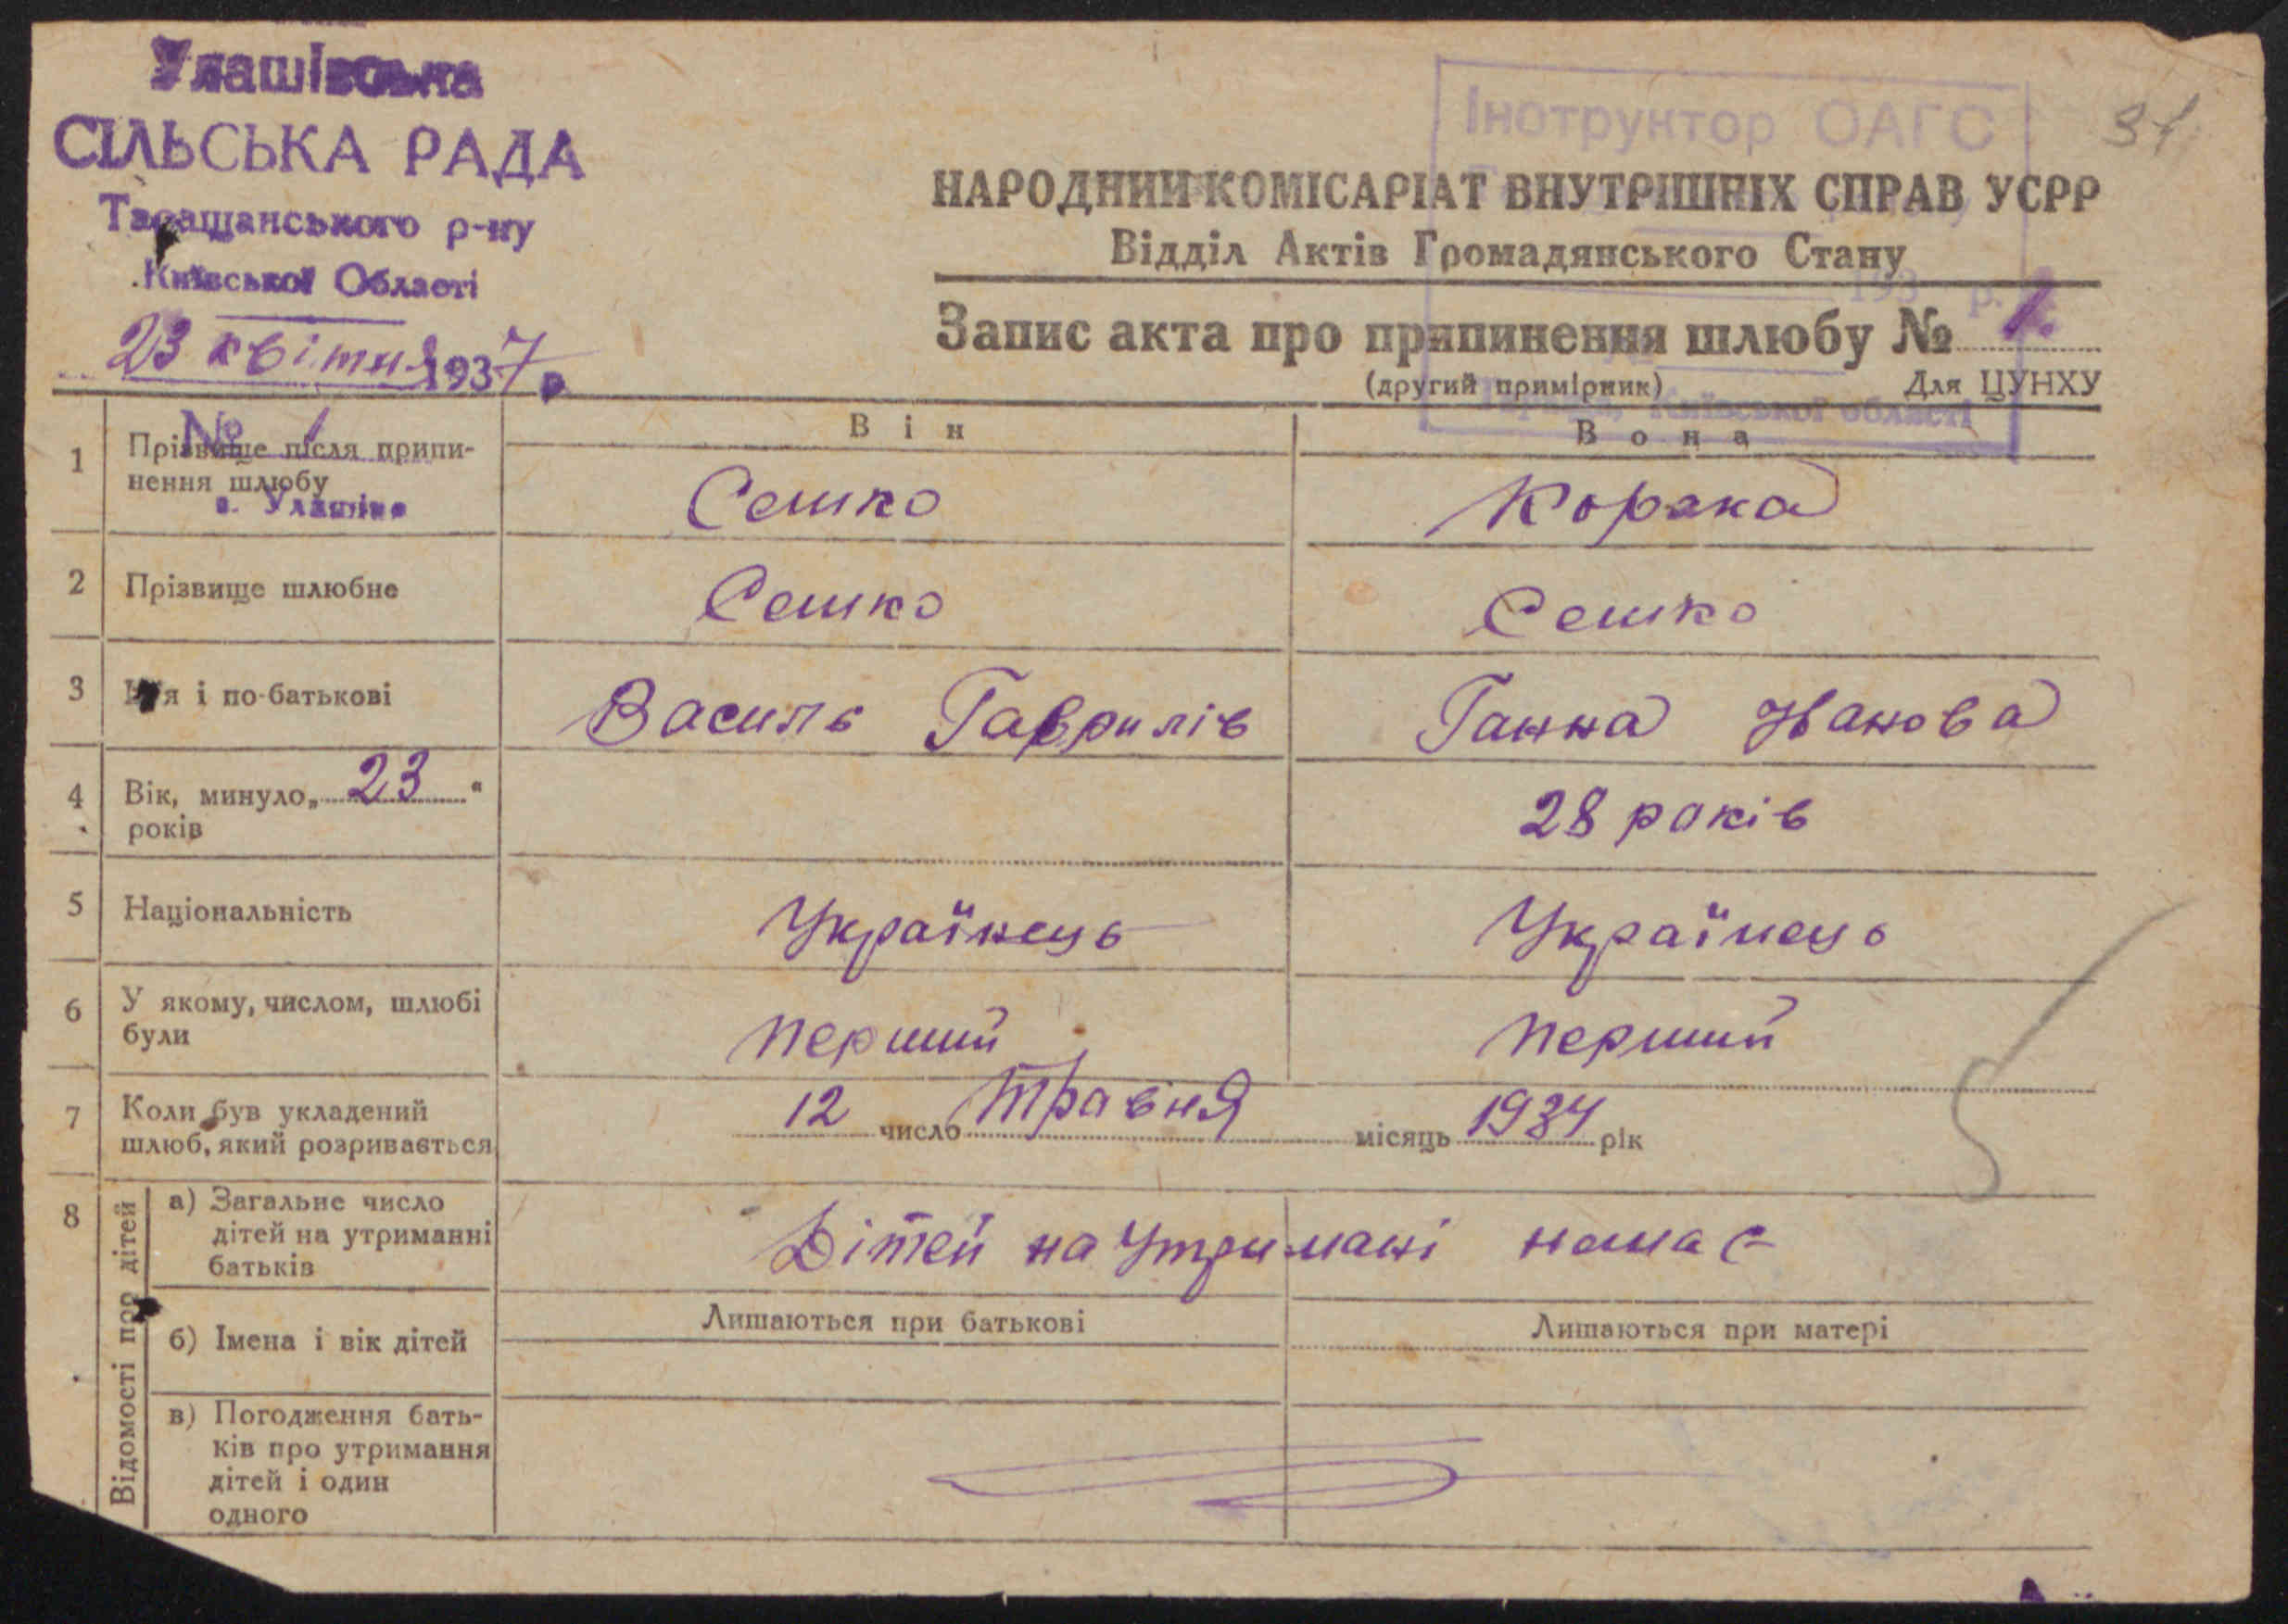 Улашівська
СІЛЬСЬКА РАДА
Таращанського р-ну
Київської Області
23 квітня 1937 р.
№ 1
с. Улашівка
Інструктор ОАГС
193 р.
Київської області
31
НАРОДНИЙ КОМІСАРІАТ ВНУТРІШНІХ СПРАВ УСРР
Відділ Актів Громадянського Стану
Запис акта про припинення шлюбу № 1.
(другий примірник) Для ЦУНХУ
Він Вона
1 Прізвище після припи-
нення шлюбу Сешко Корака
2 Прізвище шлюбне Сешко Сешко
3 Ім'я і по-батькові Василь Гаврилів Ганна Иванова
4 Вік, минуло „ 23 “
років 28 років
5 Національність Українець Українець
6 У якому, числом, шлюбі
були перший перший
7 Коли був укладений
шлюб, який розривається 12 число Травня місяць 1934 рік
8 Відомості про дітей
а) Загальне число
дітей на утриманні
батьків Дітей на утримані немає
Лишаються при батькові Лишаються при матері
б) Імена і вік дітей
в) Погодження бать-
ків про утримання
дітей і один
одного